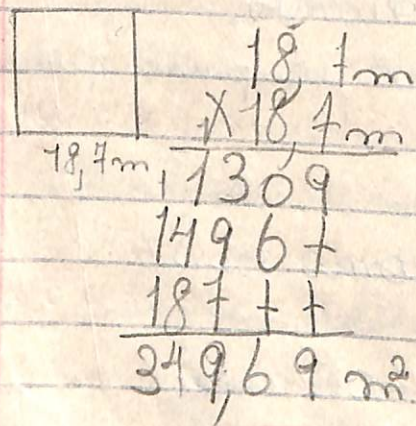 18,7m
×18,7m
18,7m
1309
1496+
187++
349,69 m²